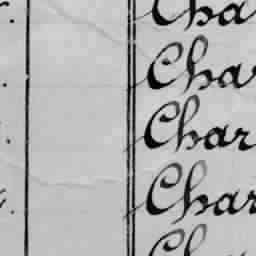 Cha
Cha
Char
Char